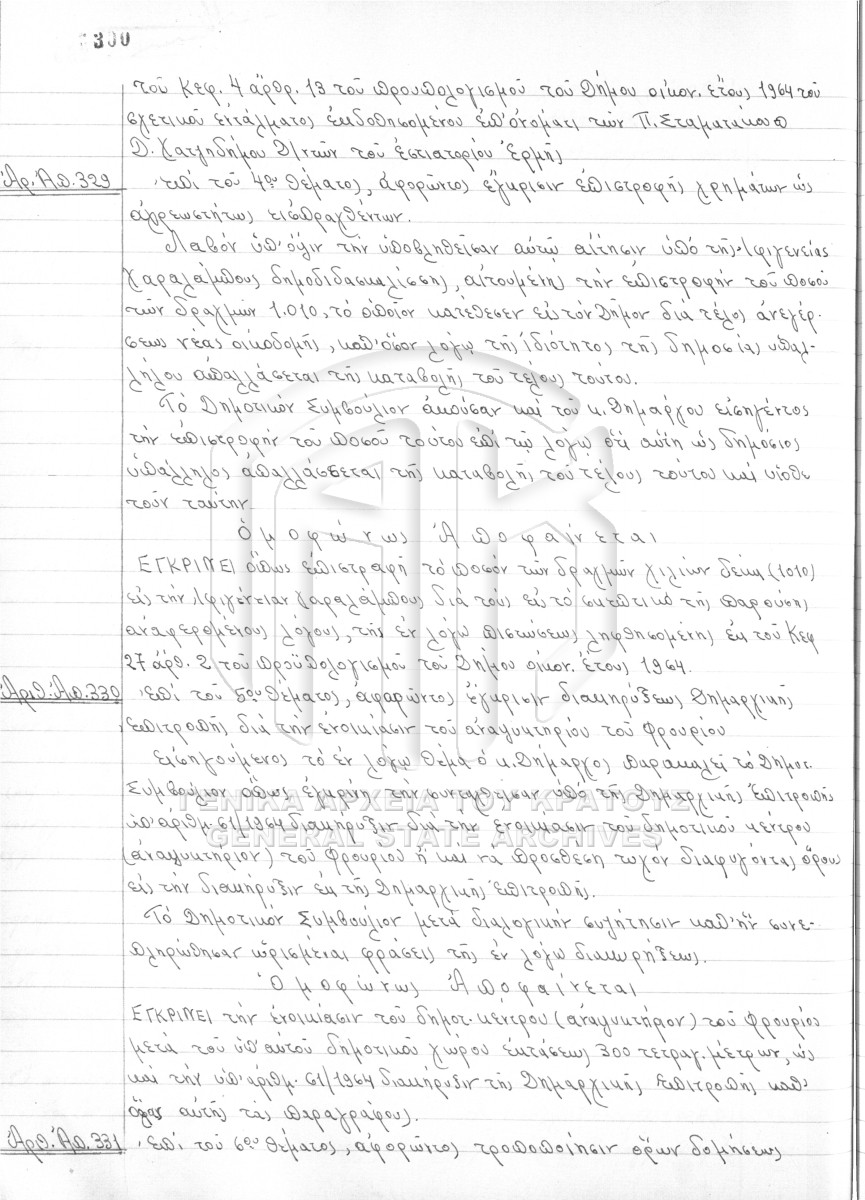 300
τοῦ Κεφ. 4 ἄρθρ. 13 τοῦ προυπολογισμοῦ τοῦ Δήμου οἰκον. ἔτους 1964 τοῦ
σχετικοῦ ἐντάλματος ἐκδοθησομένου ἐπ' ὀνόματι τῶν Π. Σταματάκου
Δ. Χατζηδήμου Δ/ντῶν τοῦ ἑστιατορίου Ἑρμῆς
Ἀρ. Ἀπ. 329
Ἐπὶ τοῦ 4ου θέματος, ἀφορῶντος ἔγκρισιν ἐπιστροφῆς χρημάτων ὡς
ἀχρεωστήτως εἰσπραχθέντων.
Λαβὸν ὑπ' ὄψιν τὴν ὑποβληθεῖσαν αὐτῷ αἴτησιν ὑπὸ τῆς Ἰφιγενείας
Χαραλάμπους δημοδιδασκαλίσσης, αἰτουμένης τὴν ἐπιστροφὴν τοῦ ποσοῦ
τῶν δραχμῶν 1.010, τὸ ὁποῖον κατέθεσεν εἰς τὸν Δῆμον διὰ τέλος ἀνεγέρ-
σεως νέας οἰκοδομῆς, καθ' ὅσον λόγῳ τῆς ἰδιότητος τῆς δημοσίας ὑπαλ-
λήλου ἀπαλλάσεται τῆς καταβολῆς τοῦ τέλους τούτου.
Τὸ Δημοτικὸν Συμβούλιον ἀκοῦσαν καὶ τοῦ κ. Δημάρχου εἰσηγέντος
τὴν ἐπιστροφὴν τοῦ ποσοῦ τούτου ἐπὶ τῷ λόγῳ ὅτι αὕτη ὡς δημόσιος
ὑπάλληλος ἀπαλλάσσεται τῆς καταβολῆς τοῦ τέλους τούτου καὶ υἱοθε
τοῦν ταύτην
Ὁμοφώνως Ἀποφαίνεται
ΕΓΚΡΙΝΕΙ ὅπως ἐπιστραφῇ τὸ ποσὸν τῶν δραχμῶν χιλίων δέκα (1010)
εἰς τὴν Ἰφιγένειαν Χαραλάμπους διὰ τοὺς εἰς τὸ σκεπτικὸ τῆς παρούσης
ἀναφερομένους λόγους, τῆς ἐν λόγῳ πιστώσεως ληφθησομένης ἐκ τοῦ Κεφ
27 ἄρθ. 2 τοῦ προϋπολογισμοῦ τοῦ Δήμου οἰκον. ἔτους 1964.
Ἀριθ. Ἀπ. 330
Ἐπὶ τοῦ 5ου θέματος, ἀφαρῶντος ἔγκρισιν διακηρύξεως Δημαρχικῆς
Ἐπιτροπῆς διὰ τὴν ἐνοικίασιν τοῦ ἀναψυκτηρίου τοῦ Φρουρίου
Εἰσηγούμενος τὸ ἐν λόγῳ θέμα ὁ κ. Δήμαρχος παρακαλεῖ τὸ Δημοτ.
Συμβούλιον ὅπως ἐγκρίνῃ τὴν συνταχθεῖσαν ὑπὸ τῆς Δημαρχικῆς Ἐπιτροπῆς
ὑπ' ἀριθμ. 61/1964 διακήρυξιν διὰ τὴν ἐνοικίασιν τοῦ δημοτικοῦ κέντρου
(ἀναψυκτηρίου) τοῦ Φρουρίου ἢ καὶ νὰ προσθέσῃ τυχὸν διαφυγόντας ὅρους
εἰς τὴν διακήρυξιν ἐκ τῆς Δημαρχικῆς Ἐπιτροπῆς.
Τὸ Δημοτικὸν Συμβούλιον μετὰ διαλογικὴν συζήτησιν καθ' ἣν συνε-
πληρώθησαν ὡρισμέναι φράσεις τῆς ἐν λόγῳ διακηρήξεως.
Ὁμοφώνως Ἀποφαίνεται
ΕΓΚΡΙΝΕΙ τὴν ἐνοικίασιν τοῦ δημοτ. κέντρου (ἀναψυκτήριον) τοῦ Φρουρίου
μετὰ τοῦ ὑπ' αὐτοῦ δημοτικοῦ χώρου ἐκτάσεως 300 τετραγ. μέτρων, ὡς
καὶ τὴν ὑπ' ἀριθμ. 61/1964 διακήρυξιν τῆς Δημαρχικῆς Ἐπιτροπῆς καθ'
ὅλας αὐτῆς τὰς παραγράφους.
Ἀρθ. Ἀπ. 331
Ἐπὶ τοῦ 6ου θέματος, ἀφορῶντος τροποποίησιν ὅρων δομήσεως
ΓΕΝΙΚΑ ΑΡΧΕΙΑ ΤΟΥ ΚΡΑΤΟΥΣ
GENERAL STATE ARCHIVES